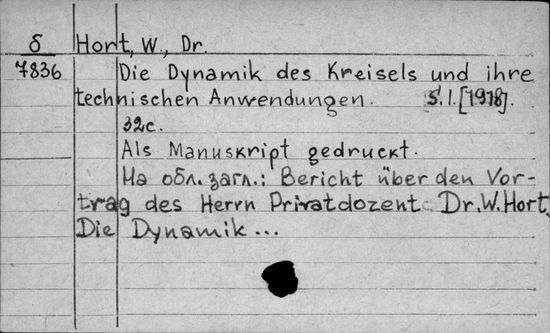 δ Hort, W., Dr.
7836 Die Dynamik des Kreisels und ihre
technischen Anwendungen. S.l. [1918].
32c.
Als Manuskript gedruckt.
На обл. загл.: Bericht über den Vor-
trag des Herrn Privatdozent Dr. W. Hort,
Die Dynamik ...